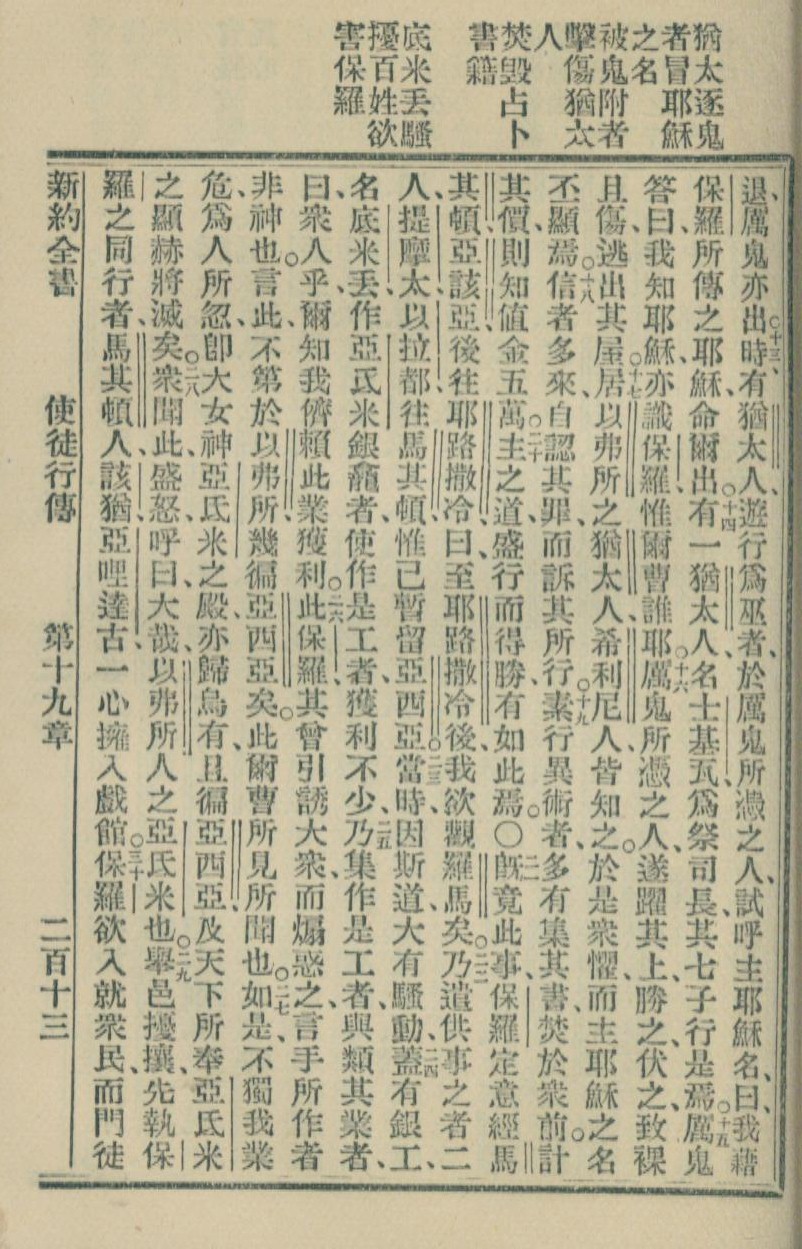 猶太逐鬼
者冒耶穌
之名
被鬼附者
擊傷猶太
人
焚毀占卜
書籍
底米丟騷
擾百姓欲
害保羅
退、厲鬼亦出、○十三時有猶太人、遊行爲巫者、於厲鬼所憑之人、試呼主耶穌名、曰、我藉
保羅所傳之耶穌、命爾出、○十四有一猶太人、名士基瓦、爲祭司長、其七子行是焉、○十五厲鬼
答曰、我知耶穌、亦識保羅、惟爾曹誰耶、○十六厲鬼所憑之人、遂躍其上、勝之、伏之、致裸
且傷、逃出其屋、○十七居以弗所之猶太人、希利尼人、皆知之、於是衆懼、而主耶穌之名
丕顯焉、○十八信者多來、自認其罪、而訴其所行、○十九素行異術者、多有集其書、焚於衆前、計
其價、則知值金五萬、○二十主之道、盛行而得勝、有如此焉、○二一既竟此事、保羅定意、經馬
其頓、亞該亞、後往耶路撒冷、曰、至耶路撒冷後、我欲觀羅馬矣、○二二乃遣供事之者二
人、提摩太、以拉都、往馬其頓、惟己暫留亞西亞、○二三當時因斯道大有騷動、二四蓋有銀工、
名底米丟、作亞氐米銀龕者、使作是工者、獲利不少、二五乃集作是工者、與類其業者、
曰、衆人乎、爾知我儕賴此業獲利、○二六此保羅、其曾引誘大衆、而煽惑之、言手所作者
非神也、○言此不第於以弗所、幾徧亞西亞矣、○此爾曹所見所聞也、○二七如是、不獨我業
危、爲人所忽、卽大女神亞氐米之殿、亦歸烏有、且徧亞西亞、及天下所奉亞氐米
之顯赫、將滅矣、○二八衆聞此、盛怒、呼曰、大哉、以弗所人之亞氐米也、○二九舉邑擾攘、先執保
羅之同行者、馬其頓人、該猶、亞哩達古、一心擁入戲館、○三十保羅欲入就衆民、而門徒
新約全書　使徒行傳　第十九章　二百十三